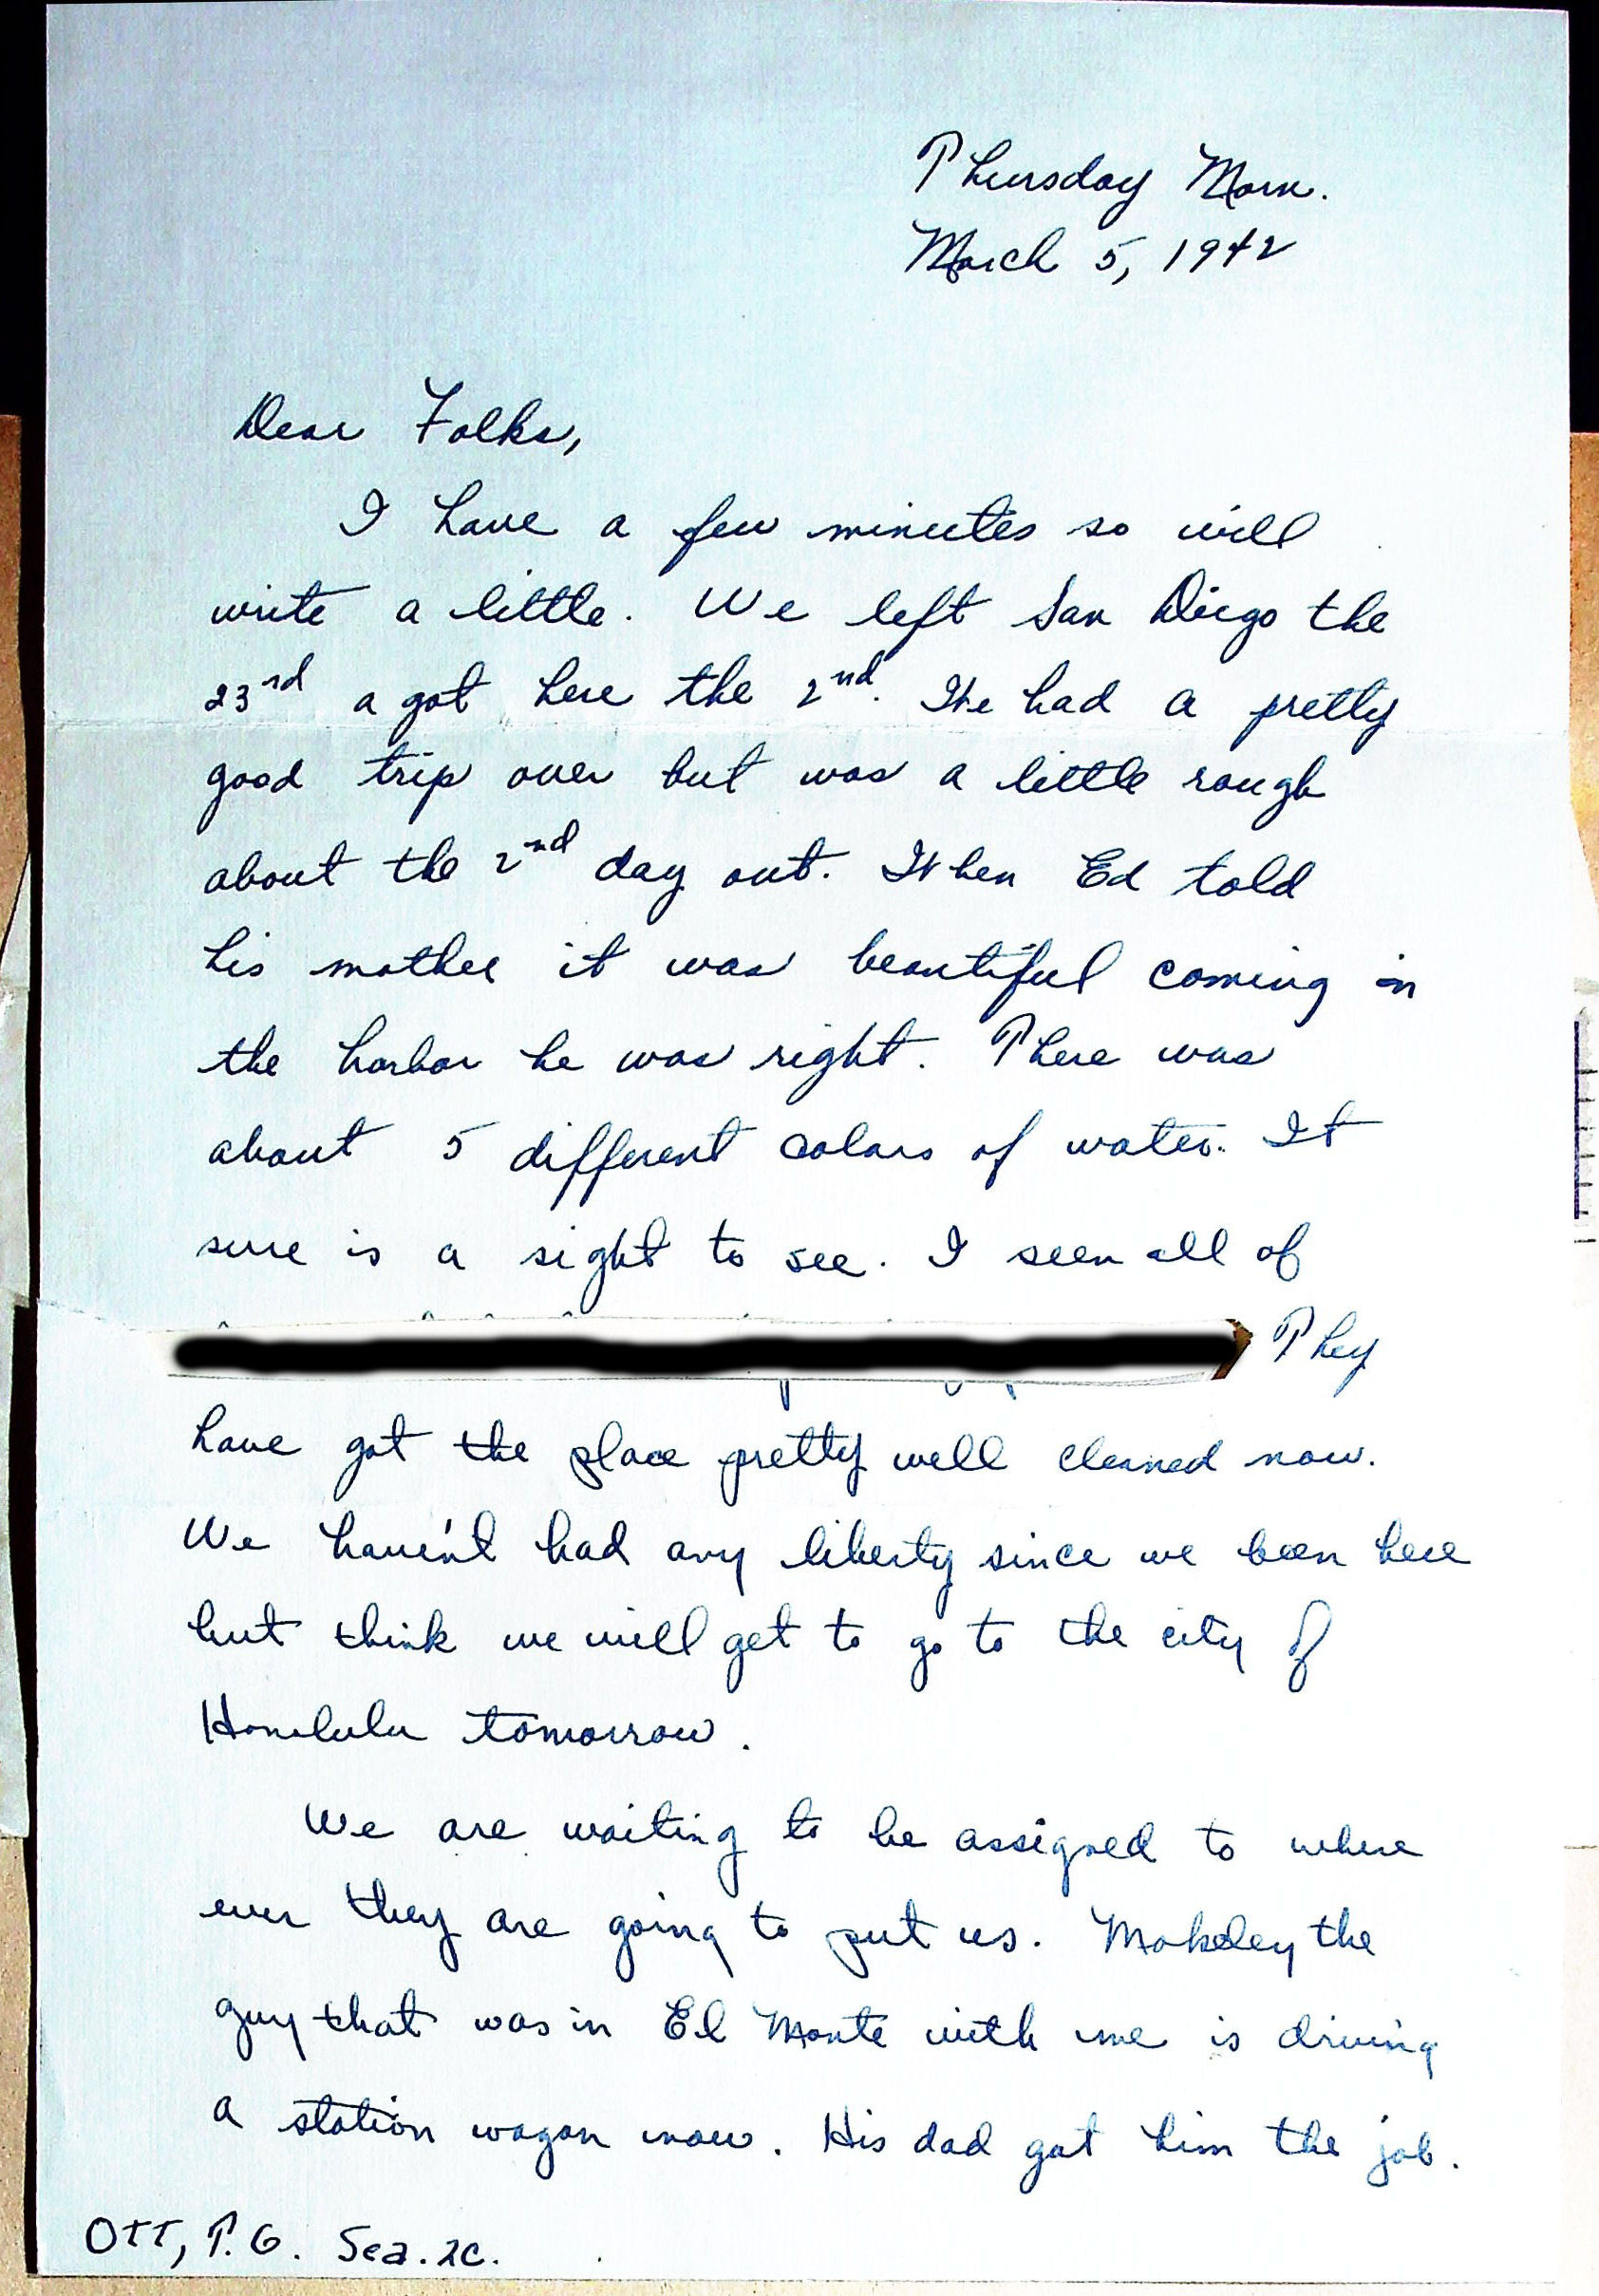 Thursday Morn.
March 5, 1942
Dear Folks,
I have a few minutes so will
write a little. We left San Diego the
23rd a got here the 2nd. We had a pretty
good trip over but was a little rough
about the 2nd day out. When Ed told
his mother it was beautiful coming in
the harbor he was right. There was
about 5 different colors of water. It
sure is a sight to see. I seen all of
They
have got the place pretty well cleaned now.
We haven't had any liberty since we been here
but think we will get to go to the city of
Honolulu tomorrow.
We are waiting to be assigned to where
ever they are going to put us. Mokeley the
guy that was in El Monte with me is driving
a station wagon now. His dad got him the job.
OTT, P.G. Sea. 2c.